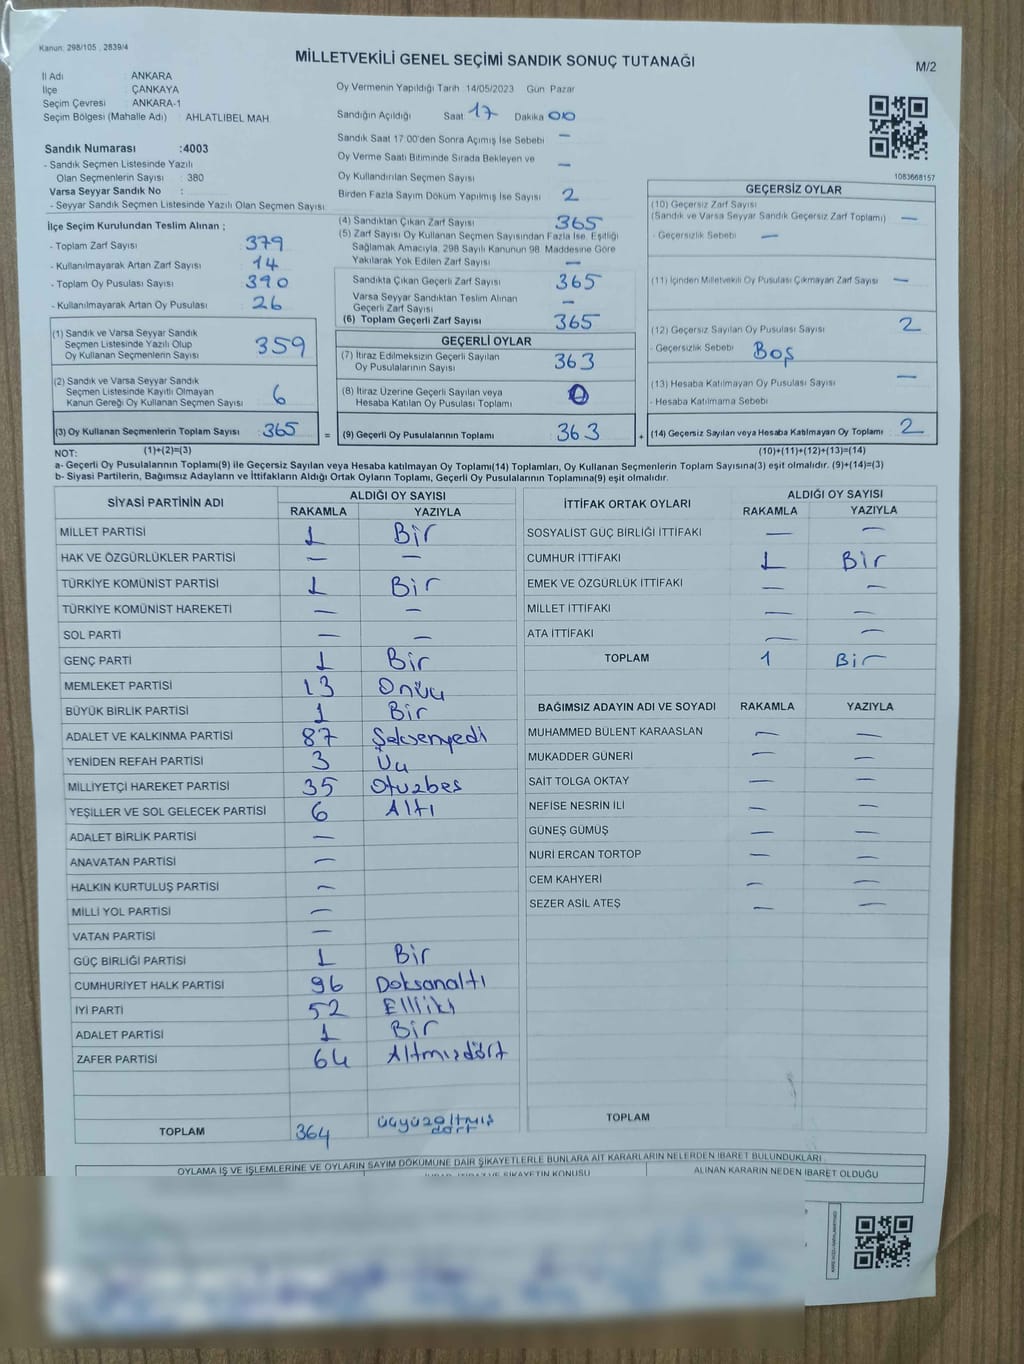 Kanun: 298/105 , 2839/4
MİLLETVEKİLİ GENEL SEÇİMİ SANDIK SONUÇ TUTANAĞI
M/2
İl Adı : ANKARA
İlçe : ÇANKAYA
Seçim Çevresi : ANKARA-1
Seçim Bölgesi (Mahalle Adı) : AHLATLIBEL MAH.
Sandık Numarası :4003
- Sandık Seçmen Listesinde Yazılı
Olan Seçmenlerin Sayısı : 380
Varsa Seyyar Sandık No :
- Seyyar Sandık Seçmen Listesinde Yazılı Olan Seçmen Sayısı:
İlçe Seçim Kurulundan Teslim Alınan ;
- Toplam Zarf Sayısı 379
- Kullanılmayarak Artan Zarf Sayısı 14
- Toplam Oy Pusulası Sayısı 390
- Kullanılmayarak Artan Oy Pusulası 26
(1) Sandık ve Varsa Seyyar Sandık
Seçmen Listesinde Yazılı Olup
Oy Kullanan Seçmenlerin Sayısı 359
(2) Sandık ve Varsa Seyyar Sandık
Seçmen Listesinde Kayıtlı Olmayan
Kanun Gereği Oy Kullanan Seçmen Sayısı 6
(3) Oy Kullanan Seçmenlerin Toplam Sayısı 365 =
Oy Vermenin Yapıldığı Tarih 14/05/2023 Gün Pazar
Sandığın Açıldığı Saat 17 Dakika 00
Sandık Saat 17:00'den Sonra Açımış İse Sebebi —
Oy Verme Saati Bitiminde Sırada Bekleyen ve
Oy Kullandırılan Seçmen Sayısı —
Birden Fazla Sayım Döküm Yapılmış İse Sayısı 2
(4) Sandıktan Çıkan Zarf Sayısı 365
(5) Zarf Sayısı Oy Kullanan Seçmen Sayısından Fazla İse, Eşitliği
Sağlamak Amacıyla, 298 Sayılı Kanunun 98. Maddesine Göre
Yakılarak Yok Edilen Zarf Sayısı —
Sandıkta Çıkan Geçerli Zarf Sayısı 365
Varsa Seyyar Sandıktan Teslim Alınan
Geçerli Zarf Sayısı —
(6) Toplam Geçerli Zarf Sayısı 365
GEÇERLİ OYLAR
(7) İtiraz Edilmeksizin Geçerli Sayılan
Oy Pusulalarının Sayısı 363
(8) İtiraz Üzerine Geçerli Sayılan veya
Hesaba Katılan Oy Pusulası Toplamı 0
(9) Geçerli Oy Pusulalarının Toplamı 363 +
1083668157
GEÇERSİZ OYLAR
(10) Geçersiz Zarf Sayısı
(Sandık ve Varsa Seyyar Sandık Geçersiz Zarf Toplamı) —
- Geçersizlik Sebebi —
(11) İçinden Milletvekili Oy Pusulası Çıkmayan Zarf Sayısı —
(12) Geçersiz Sayılan Oy Pusulası Sayısı 2
- Geçersizlik Sebebi Boş
(13) Hesaba Katılmayan Oy Pusulası Sayısı —
- Hesaba Katılmama Sebebi
(14) Geçersiz Sayılan veya Hesaba Katılmayan Oy Toplamı 2
NOT: (1)+(2)=(3) (10)+(11)+(12)+(13)=(14)
a- Geçerli Oy Pusulalarının Toplamı(9) ile Geçersiz Sayılan veya Hesaba katılmayan Oy Toplamı(14) Toplamları, Oy Kullanan Seçmenlerin Toplam Sayısına(3) eşit olmalıdır. (9)+(14)=(3)
b- Siyasi Partilerin, Bağımsız Adayların ve İttifakların Aldığı Ortak Oyların Toplamı, Geçerli Oy Pusulalarının Toplamına(9) eşit olmalıdır.
SİYASİ PARTİNİN ADI ALDIĞI OY SAYISI
RAKAMLA YAZIYLA
MİLLET PARTİSİ 1 Bir
HAK VE ÖZGÜRLÜKLER PARTİSİ — —
TÜRKİYE KOMÜNİST PARTİSİ 1 Bir
TÜRKİYE KOMÜNİST HAREKETİ — —
SOL PARTİ — —
GENÇ PARTİ 1 Bir
MEMLEKET PARTİSİ 13 Onüç
BÜYÜK BİRLİK PARTİSİ 1 Bir
ADALET VE KALKINMA PARTİSİ 87 Seksenyedi
YENİDEN REFAH PARTİSİ 3 Üç
MİLLİYETÇİ HAREKET PARTİSİ 35 Otuzbeş
YEŞİLLER VE SOL GELECEK PARTİSİ 6 Altı
ADALET BİRLİK PARTİSİ —
ANAVATAN PARTİSİ —
HALKIN KURTULUŞ PARTİSİ —
MİLLİ YOL PARTİSİ —
VATAN PARTİSİ —
GÜÇ BİRLİĞİ PARTİSİ 1 Bir
CUMHURİYET HALK PARTİSİ 96 Doksanaltı
İYİ PARTİ 52 Elliiki
ADALET PARTİSİ 1 Bir
ZAFER PARTİSİ 64 Altmışdört
TOPLAM 364 üçyüzaltmış
dört
İTTİFAK ORTAK OYLARI ALDIĞI OY SAYISI
RAKAMLA YAZIYLA
SOSYALİST GÜÇ BİRLİĞİ İTTİFAKI — —
CUMHUR İTTİFAKI 1 Bir
EMEK VE ÖZGÜRLÜK İTTİFAKI — —
MİLLET İTTİFAKI — —
ATA İTTİFAKI — —
TOPLAM 1 Bir
BAĞIMSIZ ADAYIN ADI VE SOYADI RAKAMLA YAZIYLA
MUHAMMED BÜLENT KARAASLAN — —
MUKADDER GÜNERİ — —
SAİT TOLGA OKTAY — —
NEFİSE NESRİN İLİ — —
GÜNEŞ GÜMÜŞ — —
NURİ ERCAN TORTOP — —
CEM KAHYERİ — —
SEZER ASİL ATEŞ — —
TOPLAM
OYLAMA İŞ VE İŞLEMLERİNE VE OYLARIN SAYIM DÖKÜMÜNE DAİR ŞİKAYETLERLE BUNLARA AİT KARARLARIN NELERDEN İBARET BULUNDUKLARI
İTİRAZ VE ŞİKAYETİN KONUSU
ALINAN KARARIN NEDEN İBARET OLDUĞU